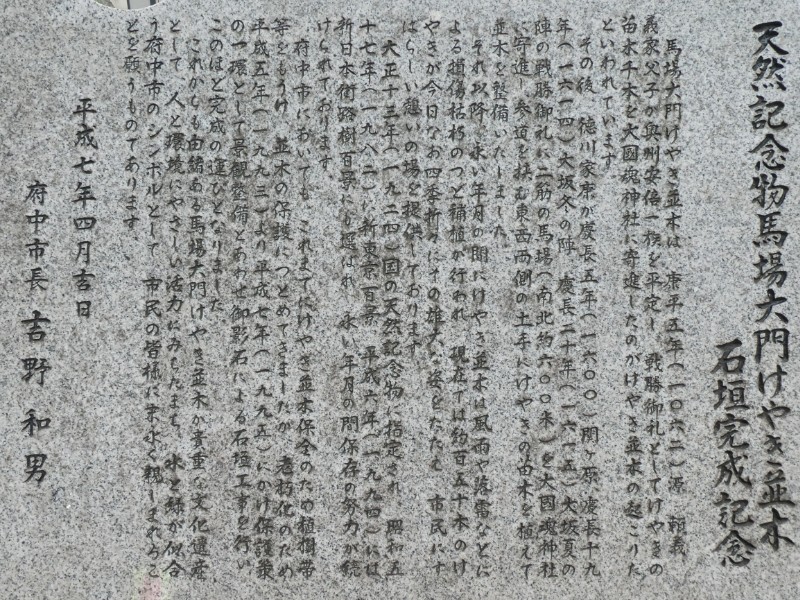 天然記念物馬場大門けやき並木
石垣完成記念
馬場大門けやき並木は、康平五年(一〇六二)源 頼義、
義家父子が奥州安倍一族を平定し、戦勝御礼としてけやきの
苗木千本を大國魂神社に寄進したのがけやき並木の起こりだ
といわれています。
その後、徳川家康が慶長五年(一六〇〇)関ヶ原、慶長十九
年(一六一四)大坂冬の陣、慶長二十年(一六一五)大坂夏の
陣の戦勝御礼に二筋の馬場(南北約六〇〇米)を大國魂神社
に寄進し、参道を挟む東西両側の土手にけやきの苗木を植えて
並木を整備いたしました。
それ以降、永い年月の間にけやき並木は風雨や落雷などに
よる損傷枯朽のつど補植が行われ、現在では約百五十本のけ
やきが今日なお四季折々にその雄大な姿をたたえ、市民にす
ばらしい憩いの場を提供しております。
大正十三年(一九二四)国の天然記念物に指定され、昭和五
十七年(一九八二)に新東京百景、平成六年(一九九四)には
新日本街路樹百景にも選ばれ、永い年月の間保存の努力が続
けられております。
府中市においても、これまでにけやき並木保全のため植樹帯
等をもうけ、並木の保護につとめてきましたが、老朽化のため
平成五年(一九九三)より平成七年(一九九五)にかけ保護策
の一環として景観整備とあわせ御影石による石垣工事を行い、
このほど完成の運びとなりました。
これからも由緒ある馬場大門けやき並木が貴重な文化遺産
として、人と環境にやさしい活力にみちたまち、水と緑が似合
う府中市のシンボルとして、市民の皆様に末永く親しまれるこ
とを願うものであります。
平成七年四月吉日
府中市長 吉野和男